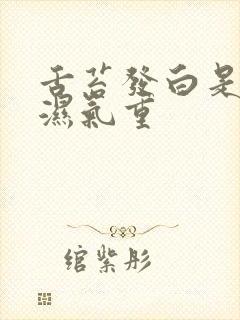 舌苔發白是
濕氣重
綰紫彤